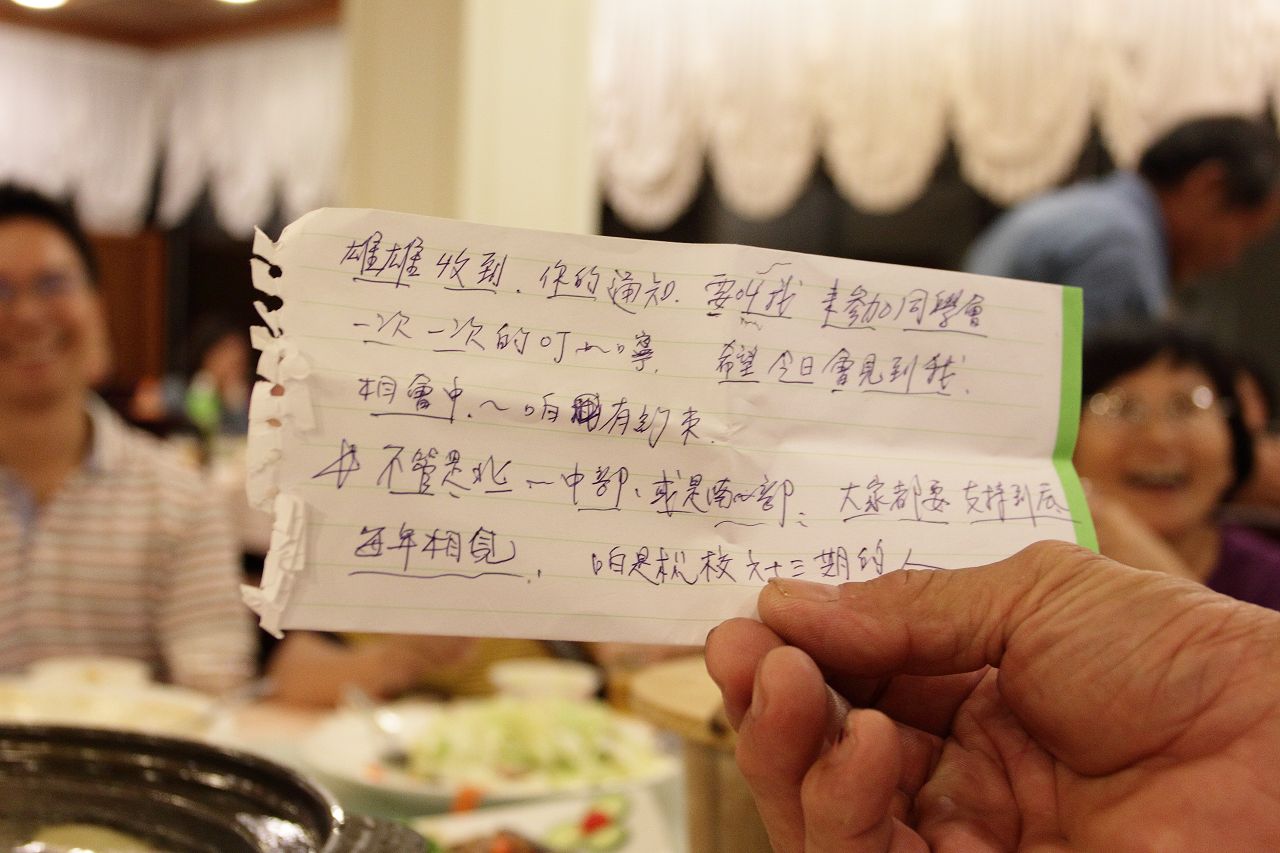 雄雄收到. 你的通知. 要叫我 來參加同學會
一次一次的叮~嚀. 希望今日會見到我.
相會中.~咱 有約束.
不管是北~中部、或是南~部、大家都要支持到底
每年相見. 咱是松校六十三期的